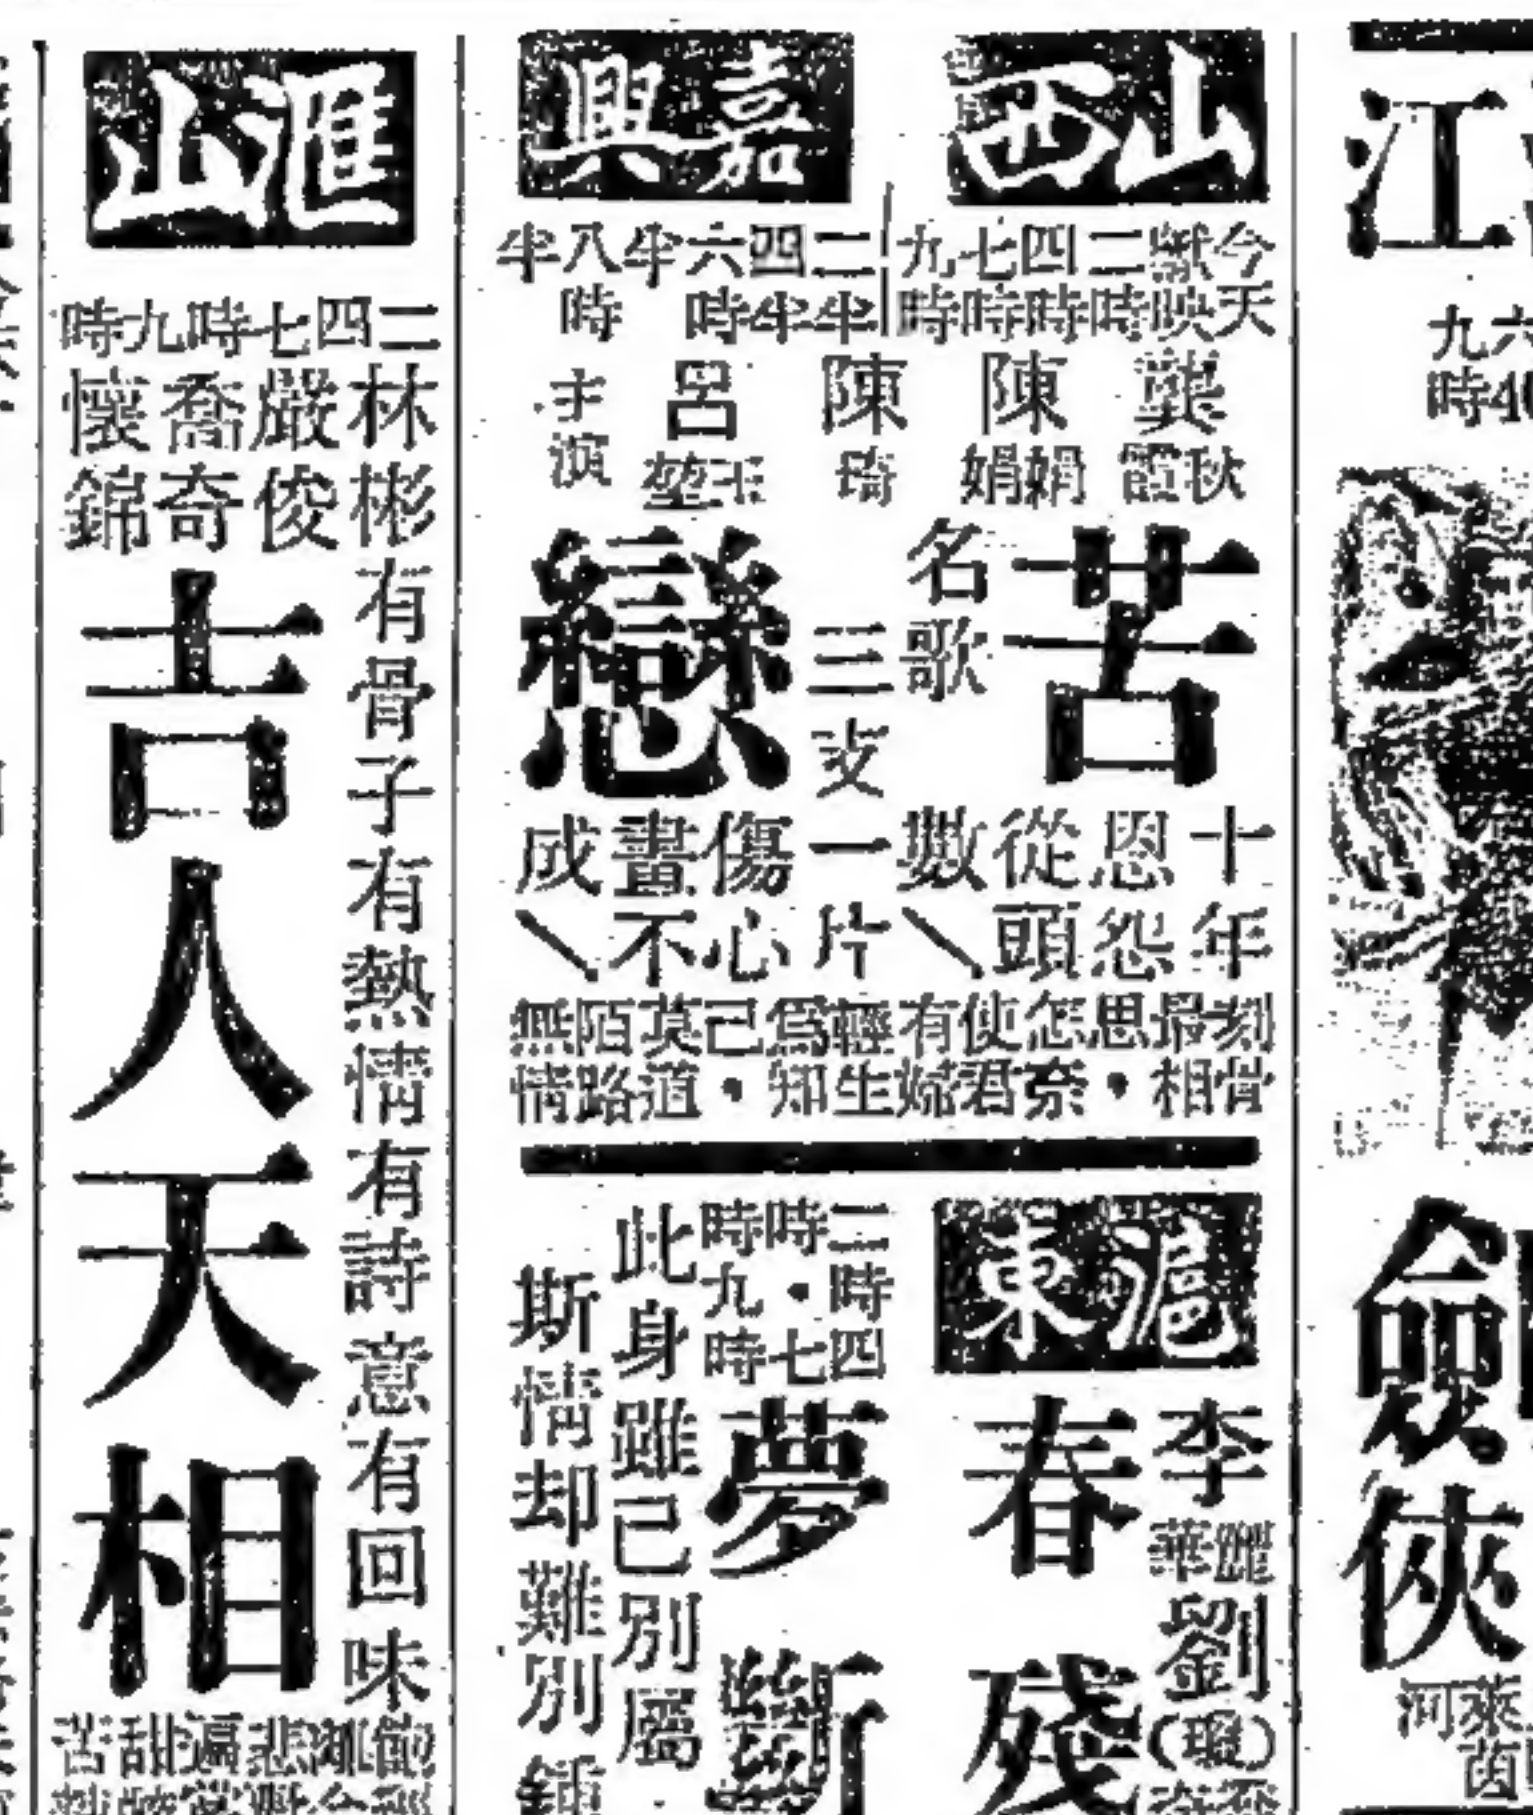 山西
今天獻映
二時四時七時九時
嘉興
二半四半六時半八時半
龔秋霞
陳娟娟
陳琦
呂玉堃
主演
苦戀
名歌三支
十年恩怨從頭數
一片傷心畫不成
刻骨最相思・怎奈使君有婦
輕生為知己・莫道陌路無情
滬東
二時四時・七時九時
李麗華
劉瓊
春殘夢斷
此身雖已別屬
斯情却難別鍾
滙山
二四七時九時
林彬
嚴俊
喬奇
懷錦
有骨子有熱情有詩意有回味
吉人天相
江
劍俠